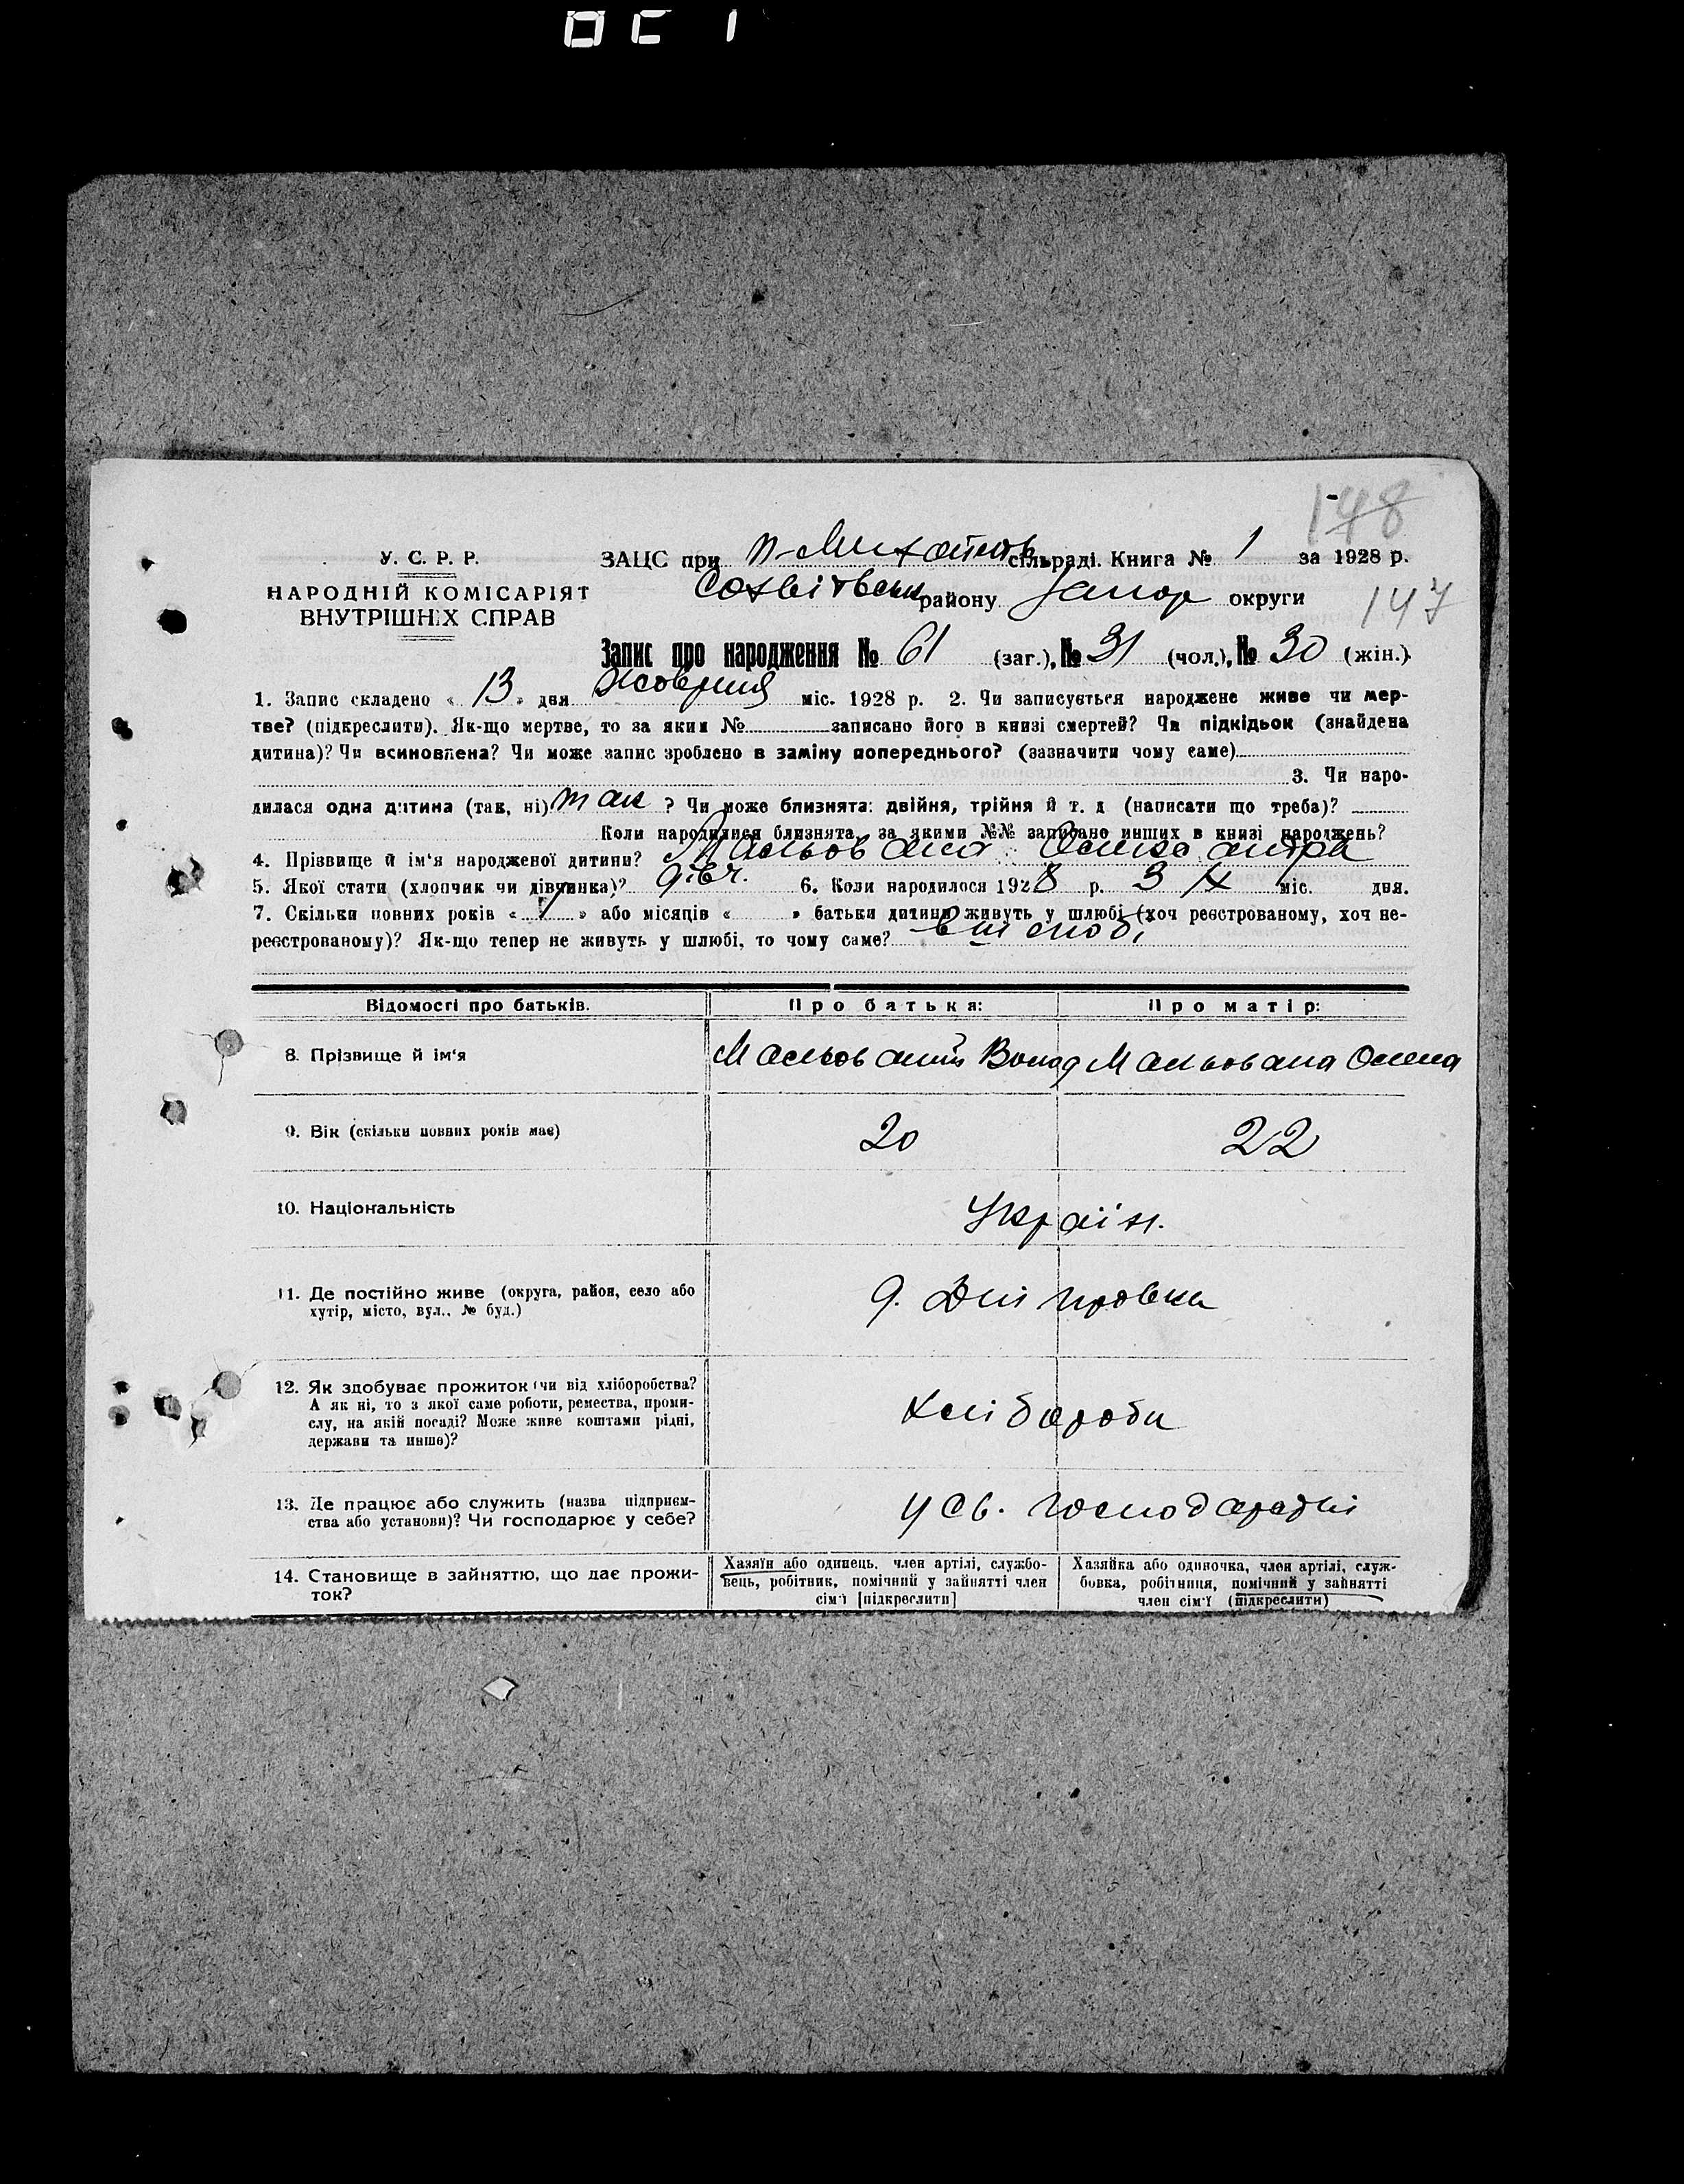 148
У. С. Р. Р.
НАРОДНІЙ КОМІСАРІЯТ
ВНУТРІШНІХ СПРАВ
ЗАЦС при сільраді. Книга № 1 за 1928 р.
району Запор округи
147
Запис про народження № 61 (заг.), № 31 (чол.), № 30 (жін.).
1. Запис складено « 13 » дня Жовтня міс. 1928 р. 2. Чи записується народжене живе чи мер-
тве? (підкреслити). Як-що мертве, то за яким № записано його в книзі смертей? Чи підкідьок (знайдена
дитина)? Чи всиновлена? Чи може запис зроблено в заміну попереднього? (зазначити чому саме)
3. Чи наро-
дилася одна дитина (так, ні) так ? Чи може близнята: двійня, трійня й т. д (написати що треба)?
Коли народилися близнята, за якими №№ записано инших в книзі народжень?
4. Прізвище й ім‘я народженої дитини? Мальована Олександра
5. Якої стати (хлопчик чи дівчинка)? дівч. 6. Коли народилося 1928 р. 3 X міс. дня.
7. Скільки повних років « 1 » або місяців « » батьки дитини живуть у шлюбі (хоч реєстрованому, хоч не-
реєстрованому)? Як-що тепер не живуть у шлюбі, то чому саме? в шлюбі
Відомості про батьків. Про батька: Про матір:
8. Прізвище й ім‘я Мальований Волод Мальована Олена
9. Вік (скільки повних років має) 20 22
10. Національність Україн.
11. Де постійно живе (округа, район, село або
хутір, місто, вул., № буд.) д. Дніпровка
12. Як здобуває прожиток (чи від хліборобства?
А як ні, то з якої саме роботи, ремества, проми-
слу, на якій посаді? Може живе коштами рідні,
держави та инше)? Хлібороби
13. Де працює або служить (назва підприєм-
ства або установи)? Чи господарює у себе? у св. господарстві
14. Становище в зайняттю, що дає прожи-
ток?
Хазяїн або одинець, член артілі, службо-
вець, робітник, помічний у зайнятті член
сім‘ї [підкреслити]
Хазяйка або одиночка, член артілі, служ-
бовка, робітниця, помічний у зайнятті
член сім‘ї (підкреслити)